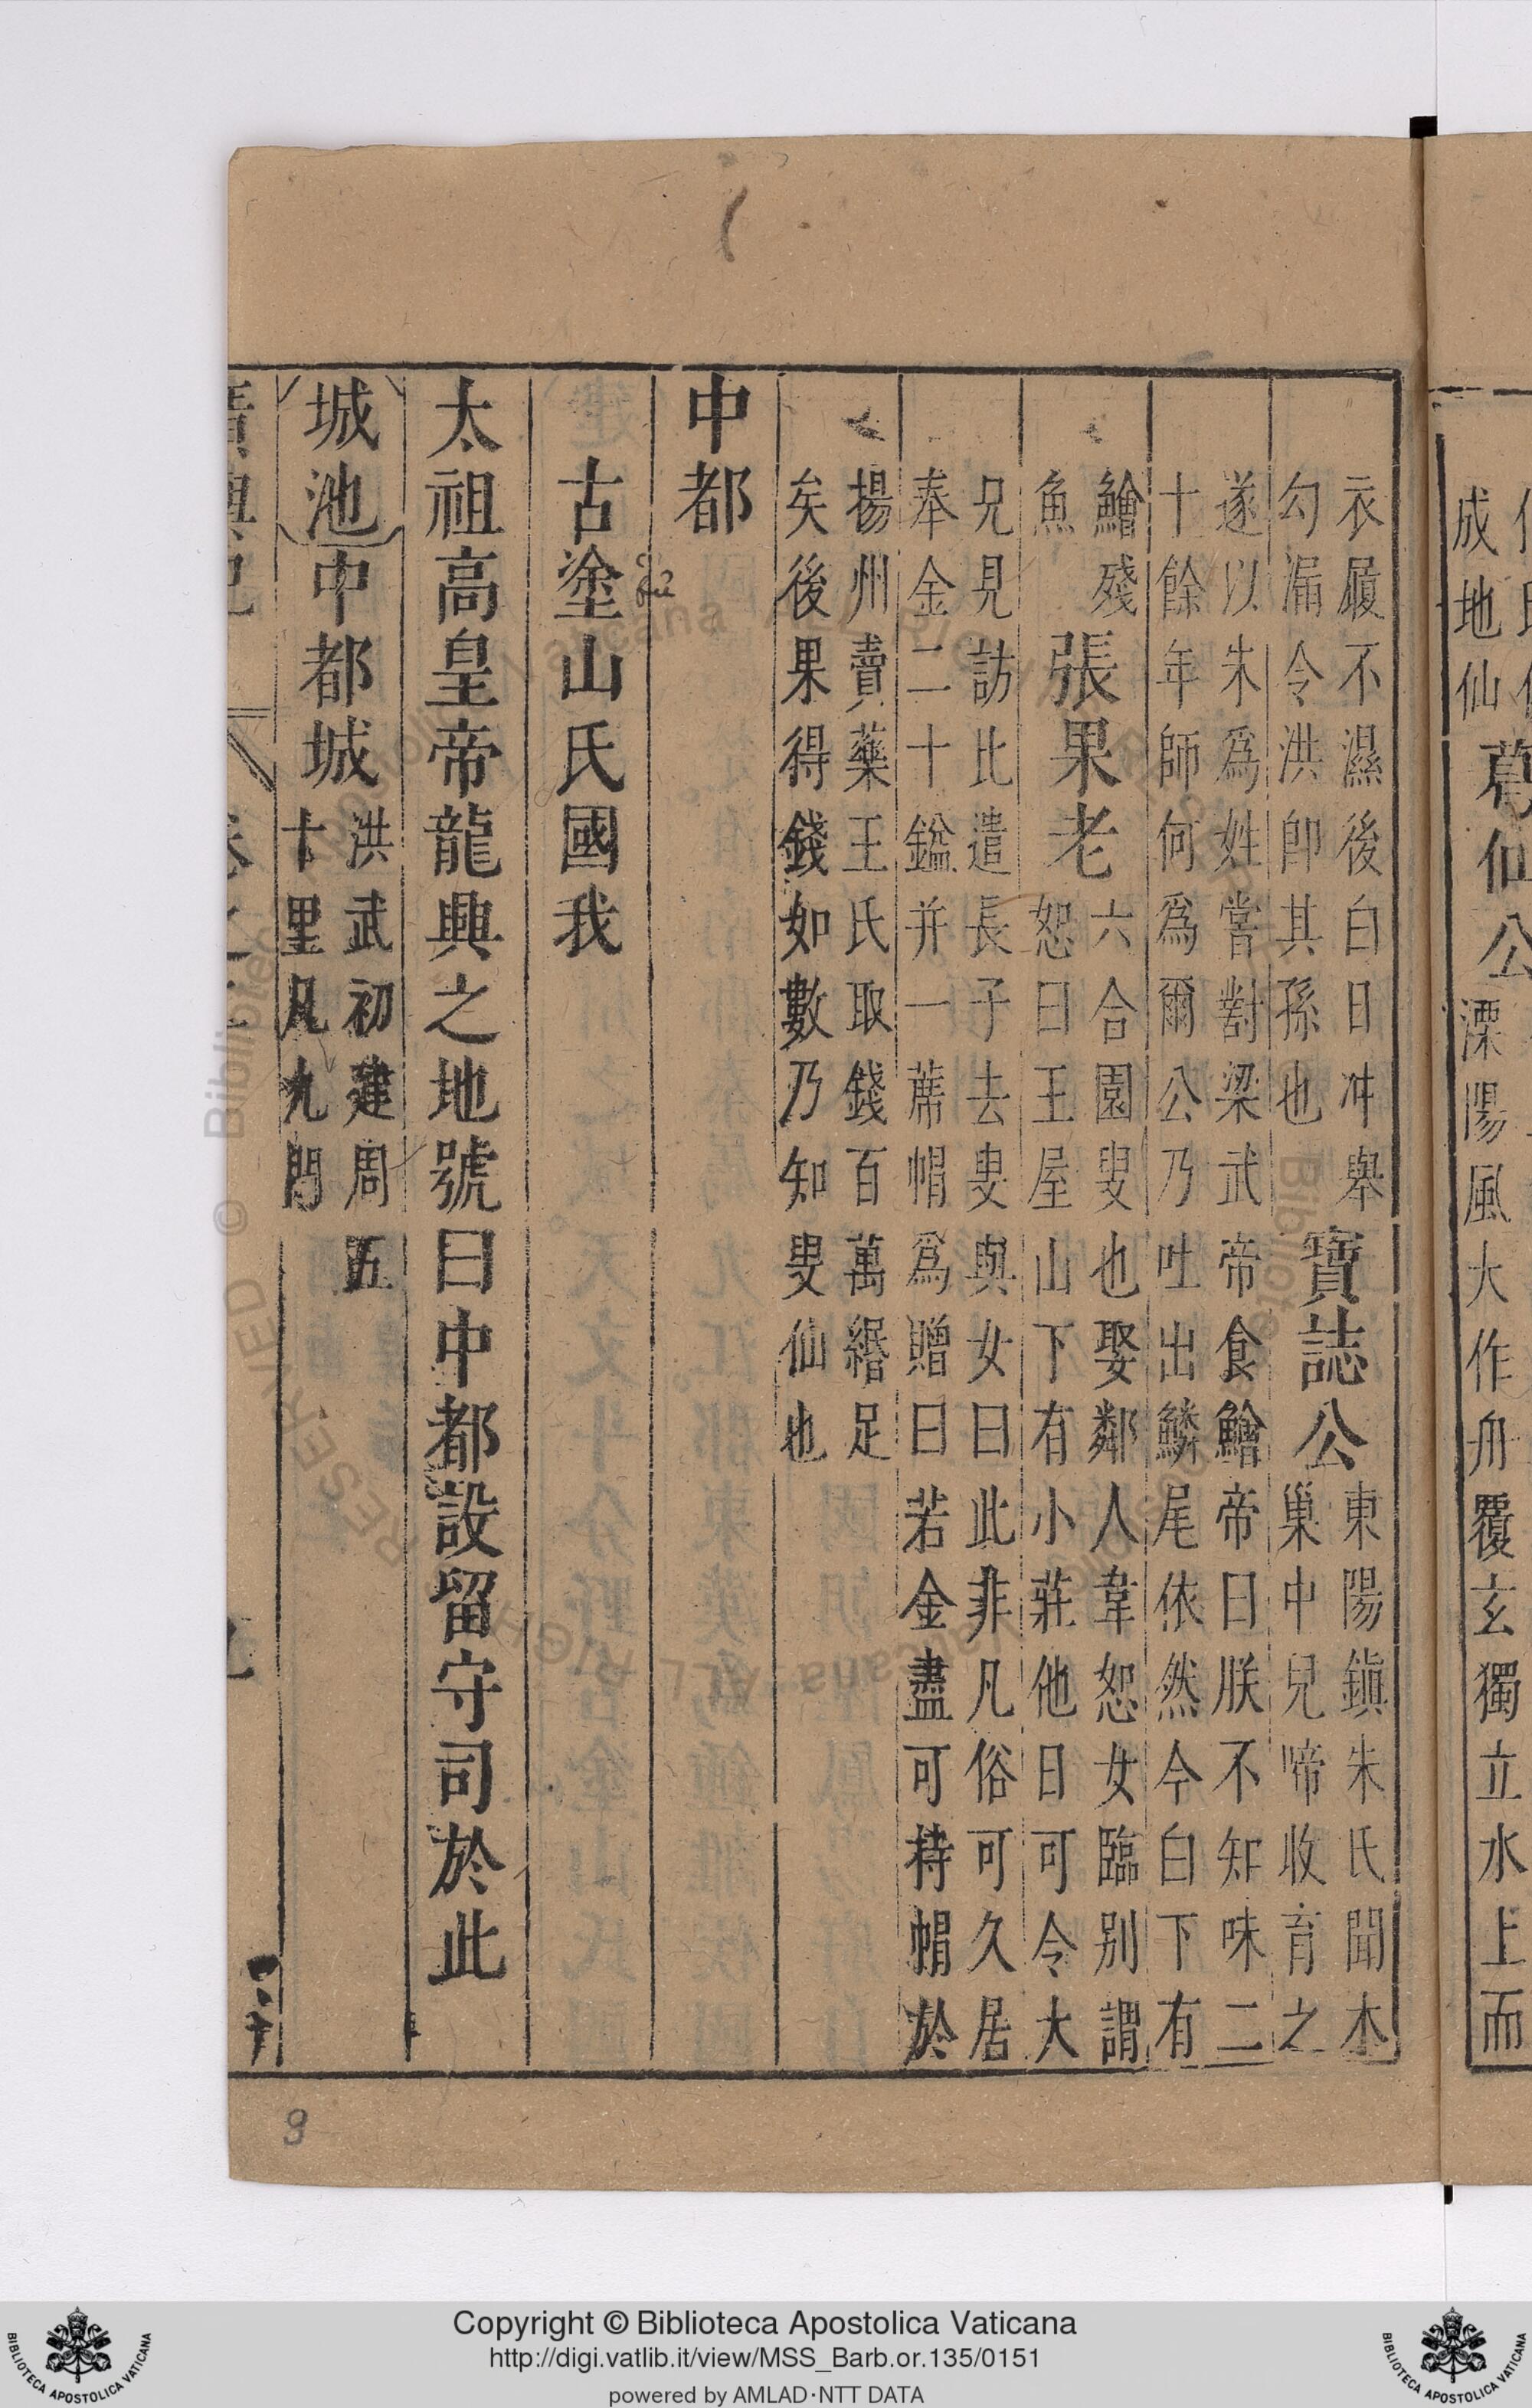 成地仙葛仙公溧陽風大作舟覆玄獨立水上而
衣履不濕後白日冲舉
勾漏令洪卽其孫也
寶誌公
東陽鎭朱氏聞木
巢中兒啼收育之
遂以朱爲姓嘗對梁武帝食鱠帝曰朕不知味二
十餘年師何爲爾公乃吐出鱗尾依然今白下有
鱠殘
魚
張果老
六合園叟也娶鄰人韋恕女臨别謂
恕曰王屋山下有小莊他日可令大
兄見訪比遣長子去叟與女曰此非凡俗可久居
奉金二十鎰并一蓆帽爲贈曰若金盡可持帽於
揚州賣藥王氏取錢百萬緡足
矣後果得錢如數乃知叟仙也
中都
古塗山氏國我
太祖高皇帝龍興之地號曰中都設留守司於此
城池中都城
洪武初建周五
十里凡九門
廣輿記
卷之二
9
Copyright © Biblioteca Apostolica Vaticana
http://digi.vatlib.it/view/MSS_Barb.or.135/0151
powered by AMLAD·NTT DATA
BIBLIOTECA APOSTOLICA VATICANA
BIBLIOTECA APOSTOLICA VATICANA